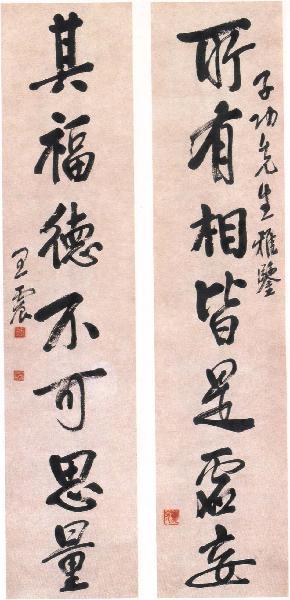 所有相皆是虛妄
子功先生雅鑒
其福德不可思量
王震